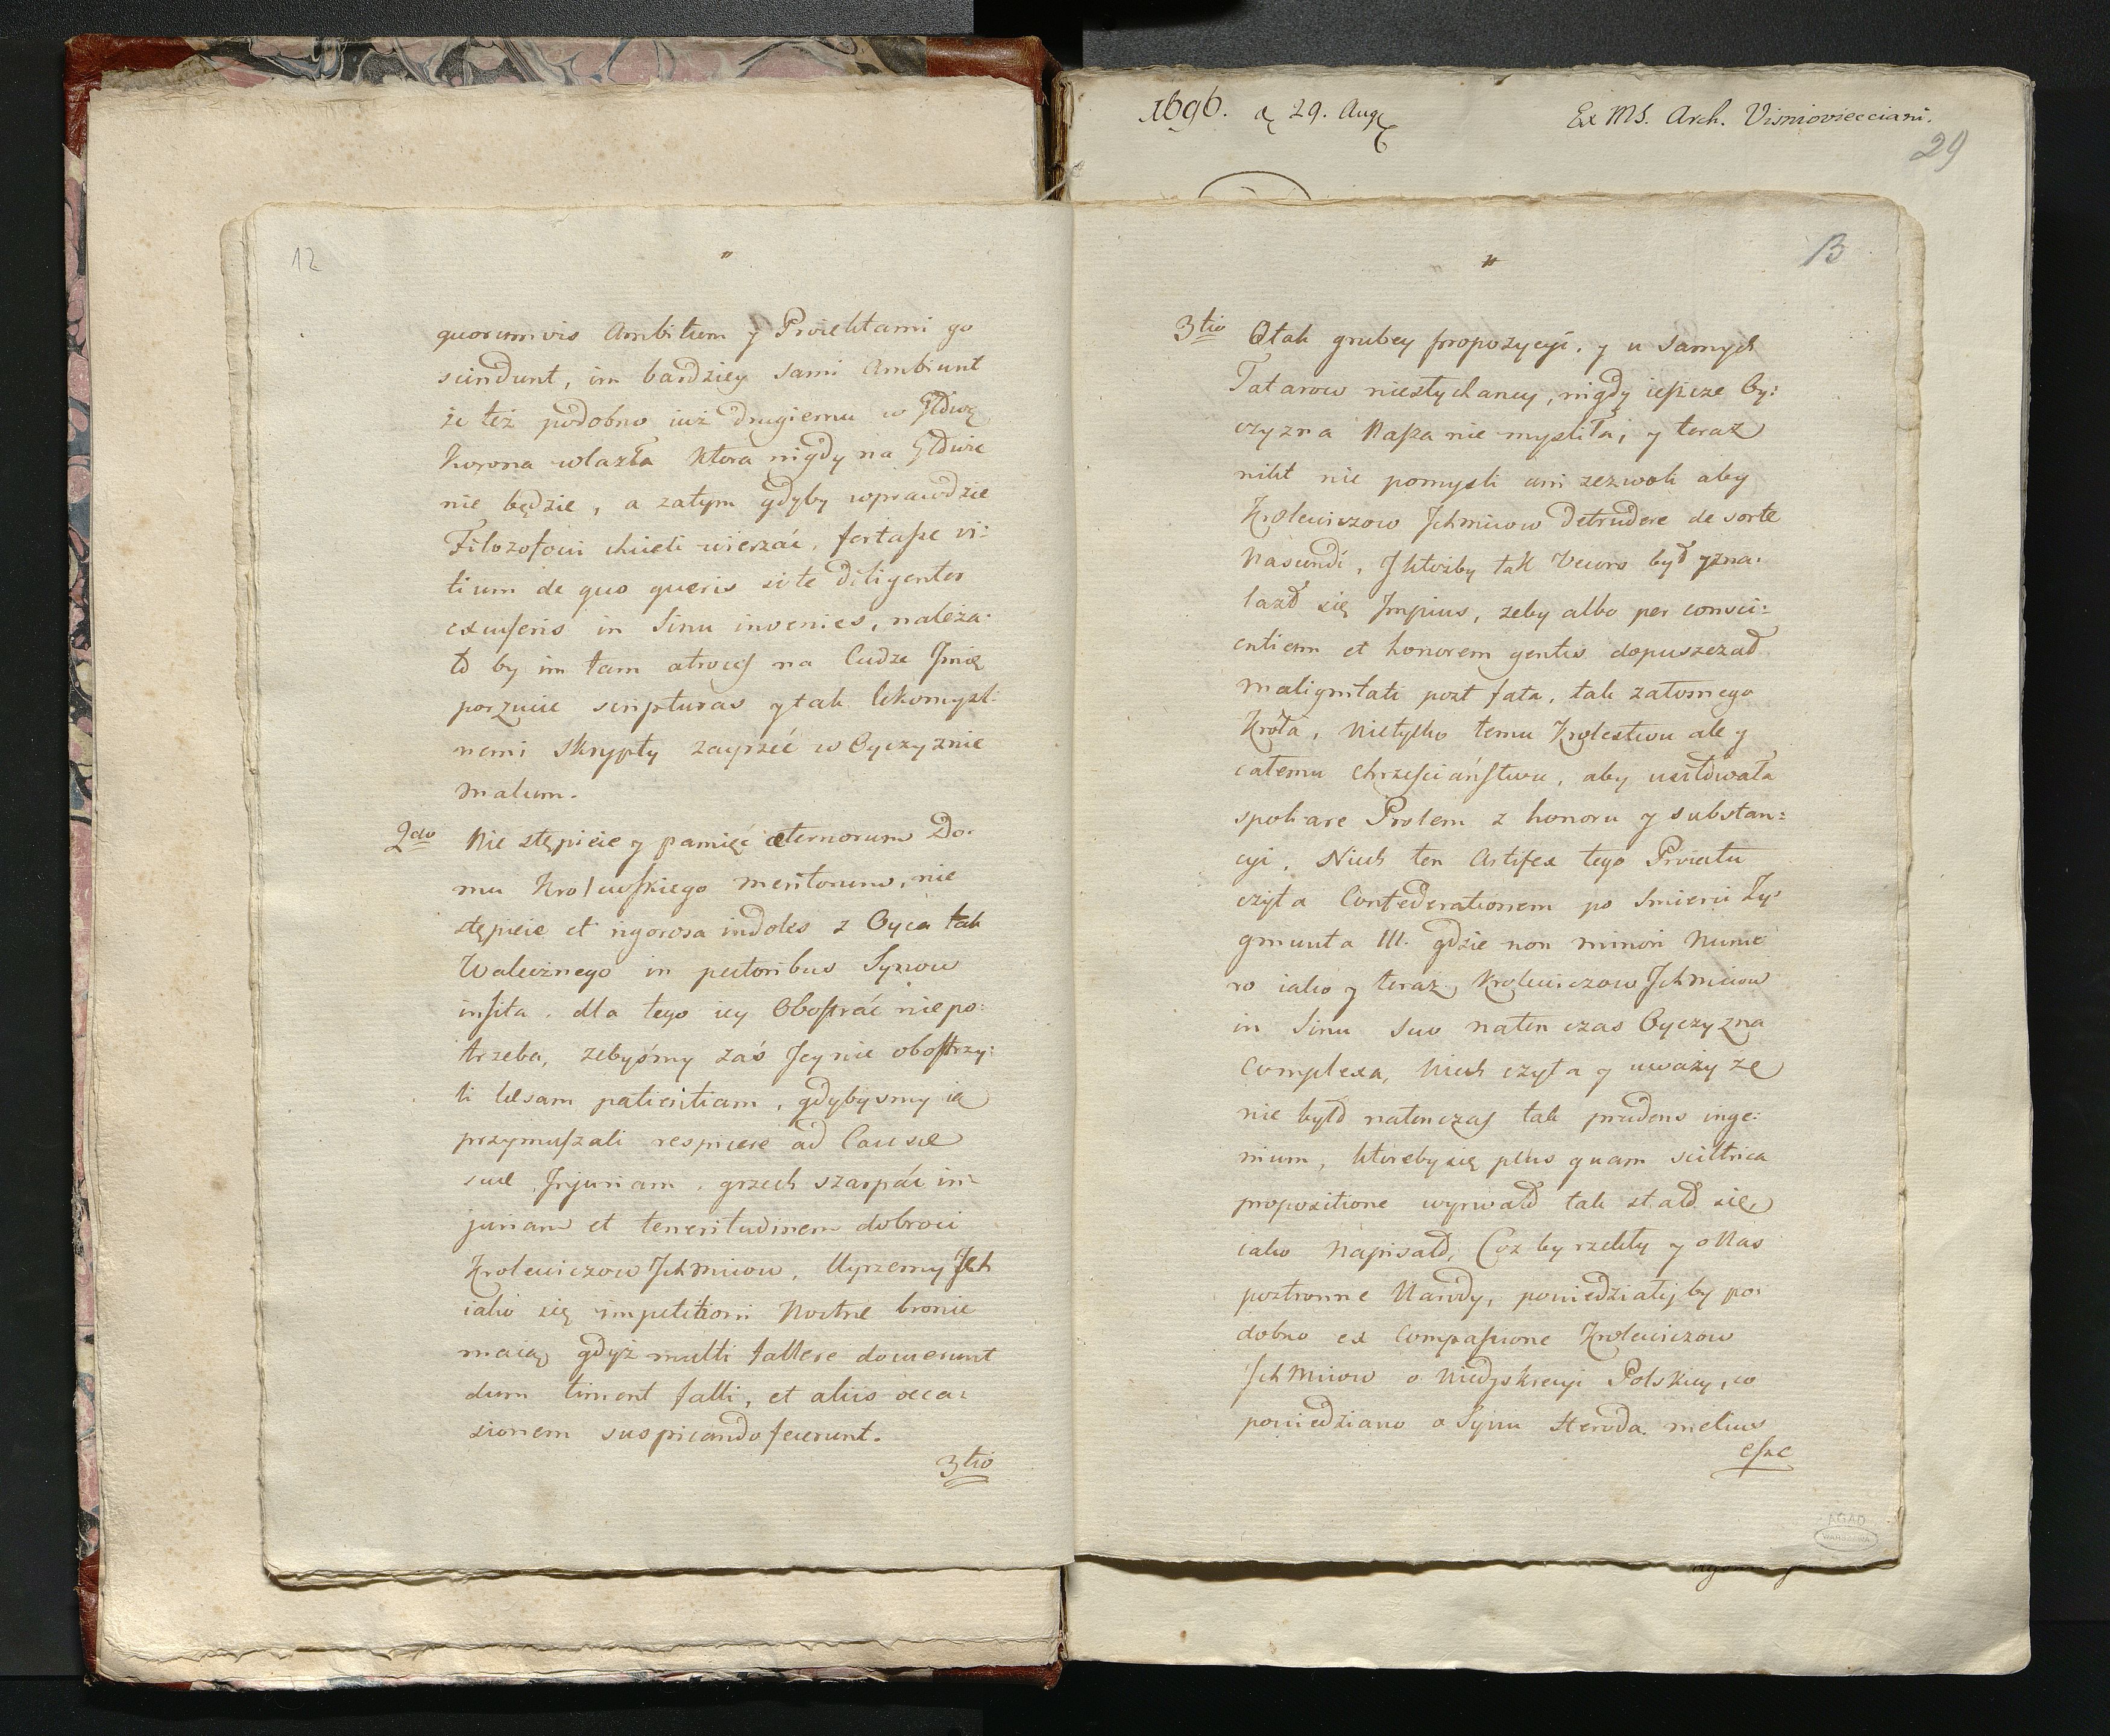 12
quorumvis Ambitum y Proiektami go
scindunt, im bardziey sami Ambiunt
że też podobno iuż drugiemu w Głowę
Korona wlazła Ktora nigdy na Głowie
nie będzie, a zatym gdyby wprawdzie
Filozofowi chcieli wierzać, fortasse vi:
tium de quo queris si te diligenter
excusseris in Sinu invenies, należa:
ło by im tam atroces na Cudze Jmię
porzucic scripturas y tak lekomysl:
nemi skrypty zayrzeć w Oyczyznie
malum.
2do Nie stępieie y pamięć æternorum Do:
mu Krolewskiego meritorum, nie
stępieie et rigorosa indoles z Oyca tak
Walecznego in pectoribus Synow
insita. dla tego iey Obostrać nie po:
trzeba, zebyśmy zaś Jey nie obostrzy:
li læsam patientiam, gdybysmy ią
przymuszali respicere ad Causæ
suæ Injuriam. grzech szarpać in:
juriam et teneritudinem dobroci
Krolewiczow Jchmciow, Uyrzemy Jch
iako się impetitioni Nostræ bronic
maią, gdyż multi fallere docuerunt
dum timent falli, et aliis occa:
sionem suspicando fecerunt.
3tio
1696. d 29. Aug
Ex MS. Arch. Visnioviecciani.
29
13
3tio O tak grubey propozycyi, y u samych
Tatarow niesłychaney, nigdy ieszcze Oy:
czyzna Nasza nie myśliła, y teraz
nikt nie pomysli ani zezwoli aby
Krolewiczow Jchmciow detrudere de sorte
Nascendi, J ktożby tak Vecors był y zna:
lazł się Impius, zeby albo per consci:
entiam et honorem gentis dopuszczał
malignitati post fata, tak załosnego
Krola, nietylko temu Krolestwu ale y
całemu Chrześciaństwu, aby usiłowała
spoliare Prolem z honoru y substan:
cyi. Niech ten Artifex tego Proiectu
czyta Confederationem po Smierci Zy:
gmunta III. gdzie non minori Nume:
ro iako y teraz Krolewiczow Jchmciow
in Sinu suo naten czas Oyczyzna
Complexa, Niech czyta y uważy ze
nie było natenczas tak prudens inge:
nium, ktoreby się plus quam scittica
propositione wyrwało tak stało się,
iako Napisało, Coz by rzekły y o Nas
postronne Narody, powiedziałyby po:
dobno ex Compassione Krolewiczow
Jchmciow o Niedyskrecyi Polskiey, co
powiedziano o Synu Heroda. melius
esse
AGAD
WARSZAWA